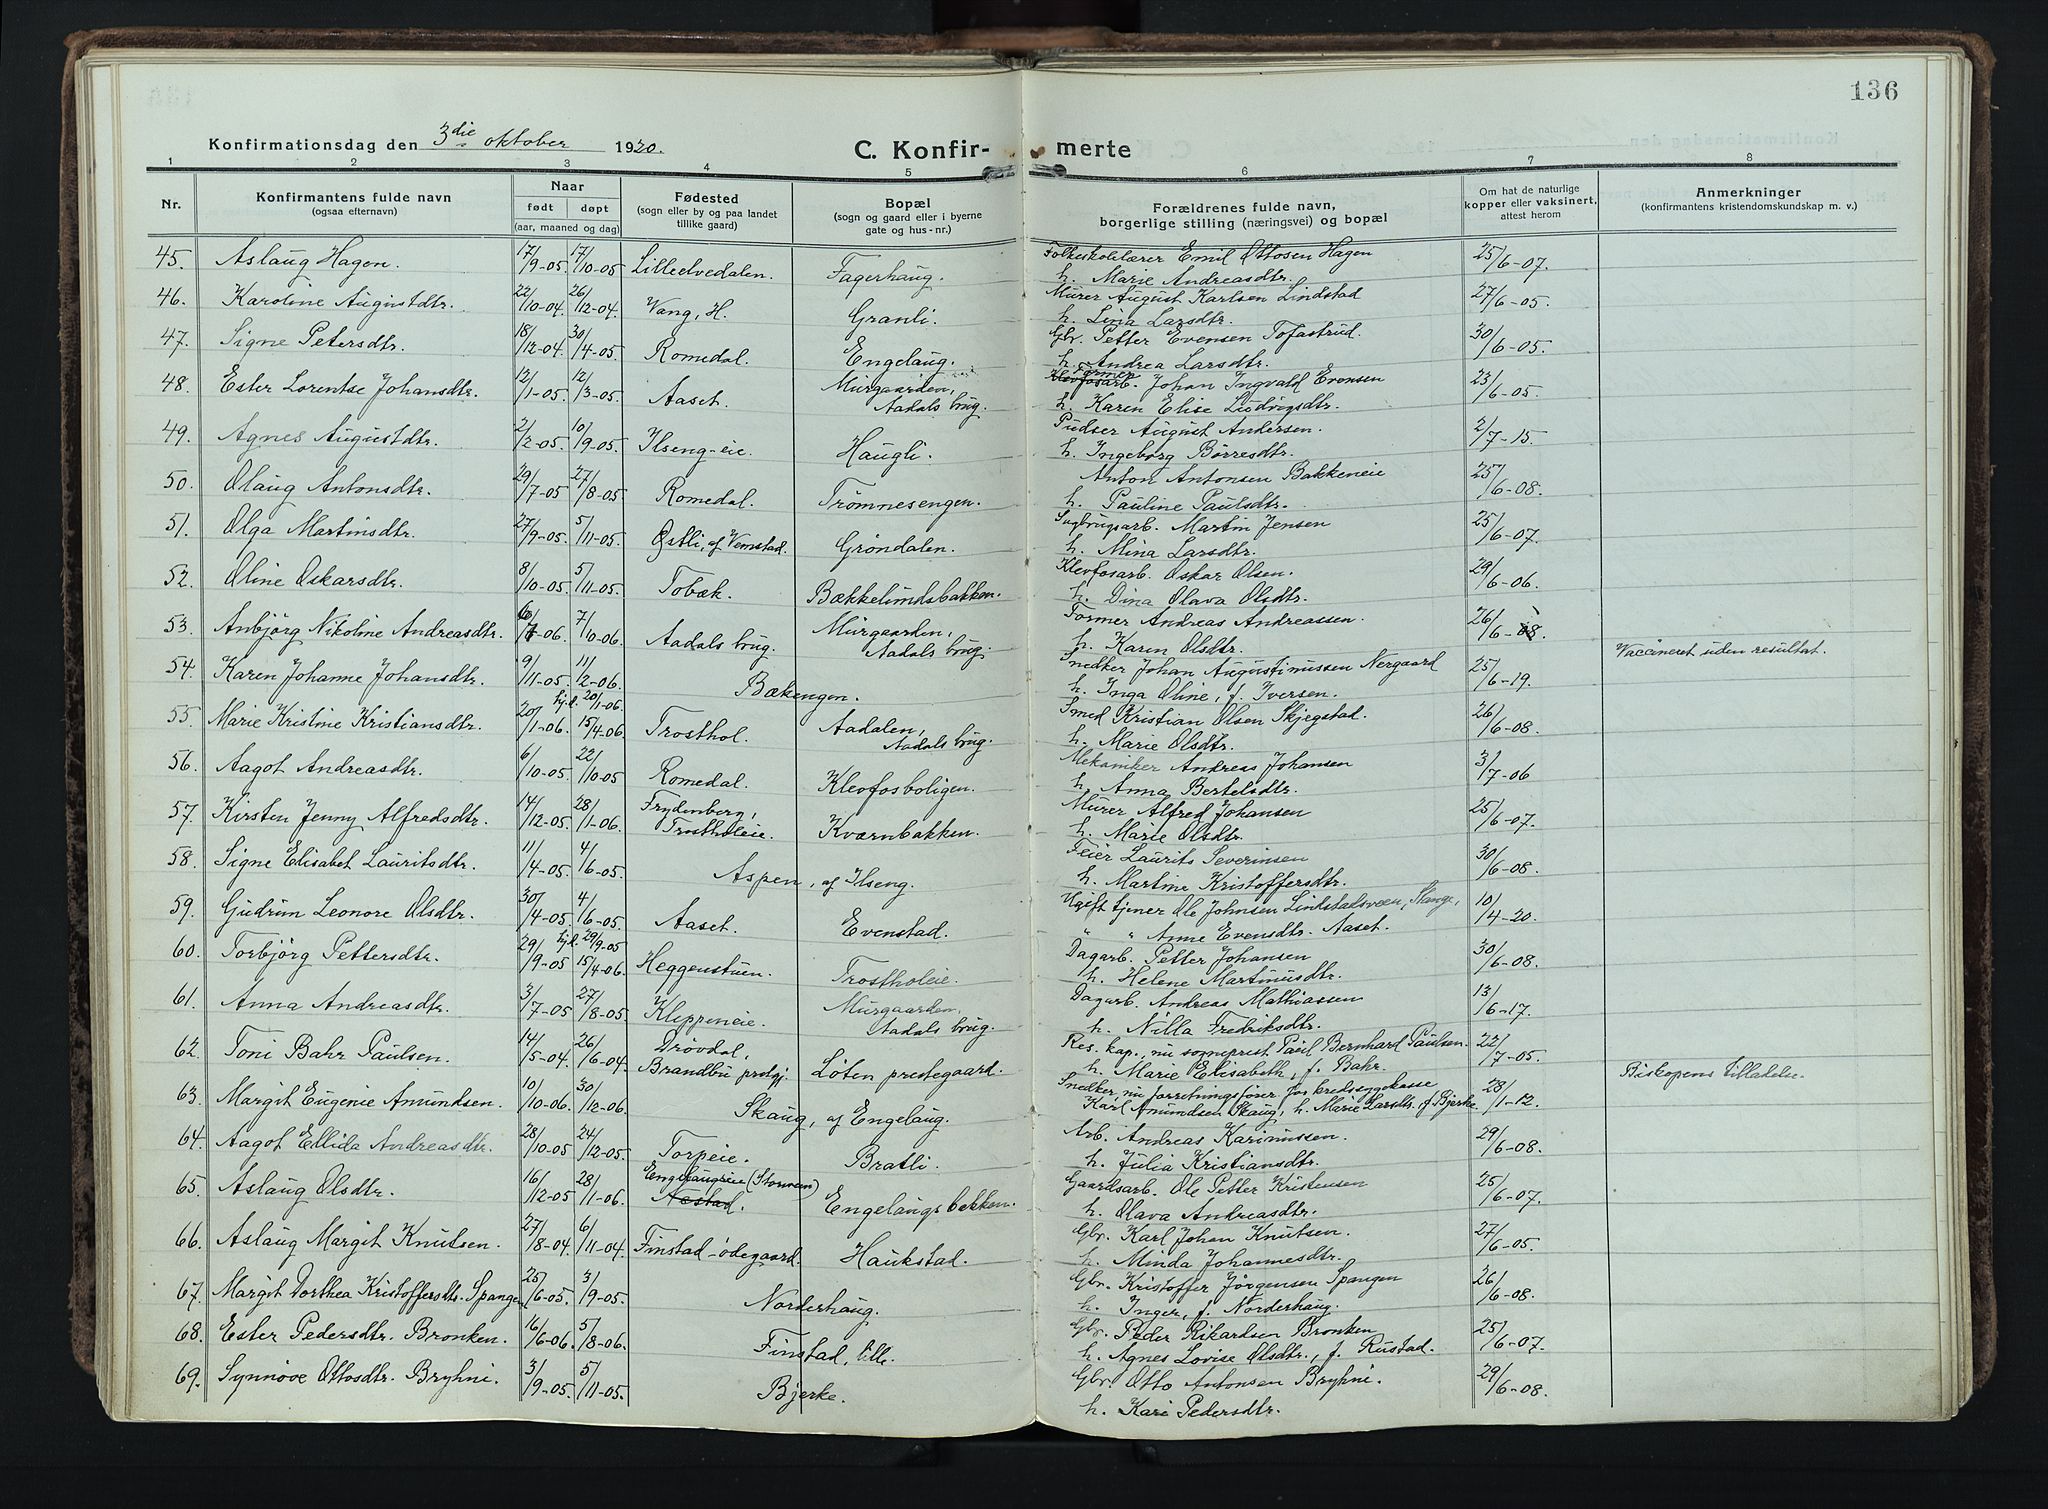 136
Konfirmationsdag den 3die oktober 1920.
C. Konfir- merte
1 2 3 4 5 6 7 8
Nr.
Konfirmantens fulde navn
(ogsaa efternavn)
Naar
født døpt
(aar, maaned og dag)
Fødested
(sogn eller by og paa landet
tillike gaard)
Bopæl
(sogn og gaard eller i byerne
gate og hus-nr.)
Forældrenes fulde navn,
borgerlige stilling (næringsvei) og bopæl
Om hat de naturlige
kopper eller vaksinert,
attest herom
Anmerkninger
(konfirmantens kristendomskundskap m. v.)
45. Aslaug Hagen. 17/9-05. 17/10-05 Lilleelvedalen. Fagerhaug. Folkeskolelærer Emil Ottosen Hagen 25/6-07.
h. Marie Andreasdtr.
46. Karoline Augustdtr. 22/10-04. 26/12-04. Vang, H. Granli. Murer August Karlsen Lindstad 27/6-05.
h. Lina Larsdtr.
47. Signe Petersdtr. 18/12-04. 30/4-05. Romedal. Engelaug. Gbr. Petter Evensen Tofastrud. 30/6-05.
h. Andrea Larsdtr.
48. Ester Lorentse Johansdtr. 12/1-05. 12/3-05. Aaset. Murgaarden, Aadals brug. Klevfosarb. Former Johan Ingvald Evensen 23/6-05.
h. Karen Elise Ludvigsdtr.
49. Agnes Augustdtr. 2/2-05. 10/9-05. Ilseng-eie. Haugli. Pudser August Andersen. 2/7-15.
h. Ingeborg Børresdtr.
50. Olaug Antonsdtr. 29/7-05 27/8-05. Romedal. Trømnesengen. Anton Antonsen Bakkeneie 25/6-08.
h. Pauline Paulsdtr.
51. Olga Martinsdtr. 27/9-05. 5/11-05. Østli, af Vemstad. Grøndalen. Sagbrugsarb. Martin Jensen 25/6-07.
h. Mina Larsdtr.
52. Oline Oskarsdtr. 8/10-05. 5/11-05. Tobæk. Bækkelundsbakken. Klevfosarb. Oskar Olsen. 29/6-06.
h. Dina Olava Olsdtr.
53. Anbjörg Nikoline Andreasdtr. 6/7-06. 7/10-06. Aadals brug. Murgaarden, Aadals brug. Former Andreas Andreassen. 26/6-08.
h. Karen Olsdtr. Vaccineret uden resultat.
54. Karen Johanne Johansdtr. 9/11-05. 11/2-06. Bækengen. Snedker Johan Augustinussen Nergaard 25/6-19.
h. Inga Oline, f. Iversen.
55. Marie Kristine Kristiansdtr. 20/1-06. hj.d. 20/1-06. 15/4-06. Trosthol. Aadalen, Aadals brug. Smed Kristian Olsen Skjegstad. 26/6-08.
h. Marie Olsdtr.
56. Aagot Andreasdtr. 6/10-05. 22/10-05 Romedal. Klevfosboligen. Mekaniker Andreas Johansen 3/7-06
h. Anna Bertelsdtr.
57. Kirsten Jenny Alfredsdtr. 14/12-05. 28/1-06. Frydenberg, Trostholeie. Kværnbakken. Murer Alfred Johansen 25/6-07.
h. Marie Olsdtr.
58. Signe Elisabet Lauritsdtr. 11/4-05. 4/6-05. Aspen, af Ilseng. Feier Laurits Severinsen 30/6-08.
h. Martine Kristoffersdtr.
59. Gudrun Leonore Olsdtr. 30/4-05. 4/6-05. Aaset. Evenstad. Ugift tjener Ole Johnsen Lindstadsveen, Stange, 10/4-20.
" " Anne Evensdtr. Aaset.
60. Torbjörg Pettersdtr. 29/9-05. hj.d. 29/9-05 15/4-06. Heggenstuen. Trostholeie. Dagarb. Petter Johansen 30/6-08.
h. Helene Martinusdtr.
61. Anna Andreasdtr. 3/7-05 27/8-05. Kleppeneie. Murgaarden, Aadals brug. Dagarb. Andreas Mathiassen 13/6-17.
h. Nilla Fredriksdtr.
62. Toni Bahr Paulsen. 14/5-04. 26/6-04. Drövdal, Brandbu prstgj. Løten prestegaard. Res. kap., nu sogneprest Paul Bernhard Paulsen. 22/7-05.
h. Marie Elisabeth, f. Bahr. Biskopens tilladelse.
63. Margit Eugenie Amundsen. 10/10-06. 30/12-06. Skaug, af Engelaug. Snedker, nu forretningsfører for kredssygekasse 28/1-12.
Karl Amundsen Skaug, h. Marie Larsdtr. f. Bjerke
64. Aagot Ellida Andreasdtr. 28/10-05 24/12-05. Torpeie. Bratli. Arb. Andreas Karinussen. 29/6-08.
h. Julia Kristiansdtr.
65. Aslaug Olsdtr. 16/12-05 28/1-06. Engelaugeie (Stormoen) Nestad. Engelaugsbakken. Gaardsarb. Ole Petter Kristensen 25/6-07.
h. Olava Andreasdtr.
66. Aslaug Margit Knutsen. 27/8-04. 6/11-04. Finstad-ødegaard. Haukstad. Gbr. Karl Johan Knutsen. 27/6-05.
h. Minda Johannesdtr.
67. Margit Dorthea Kristoffersdtr. Spangen 25/6-05. 3/9-05. Norderhaug. Gbr. Kristoffer Jörgensen Spangen 26/6-08.
h. Inger, f. Norderhaug.
68. Ester Pedersdtr. Bronken. 16/6-06. 5/8-06. Finstad, lille. Gbr. Peder Rikardsen Bronken 25/6-07.
h. Agnes Lovise Olsdtr., f. Rustad.
69. Synnøve Ottosdtr. Bryhni. 3/9-05. 5/11-05. Bjerke. Gbr. Otto Antonsen Bryhni. 29/6-08.
h. Kari Pedersdtr.